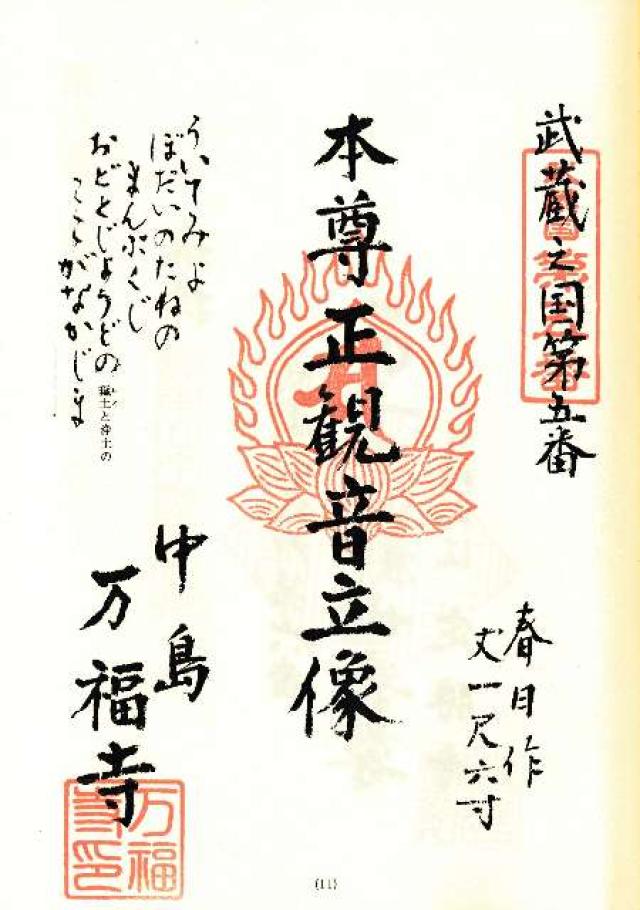 武蔵之国第五番
春日作
丈一尺六寸
本尊正観音立像
うゑてみよ
ぼだいのたねの
まんぷくじ
おどとじょうどの
穢土と浄土の
こゝがなかじま
中島
万福寺
万福
寺印
(11)